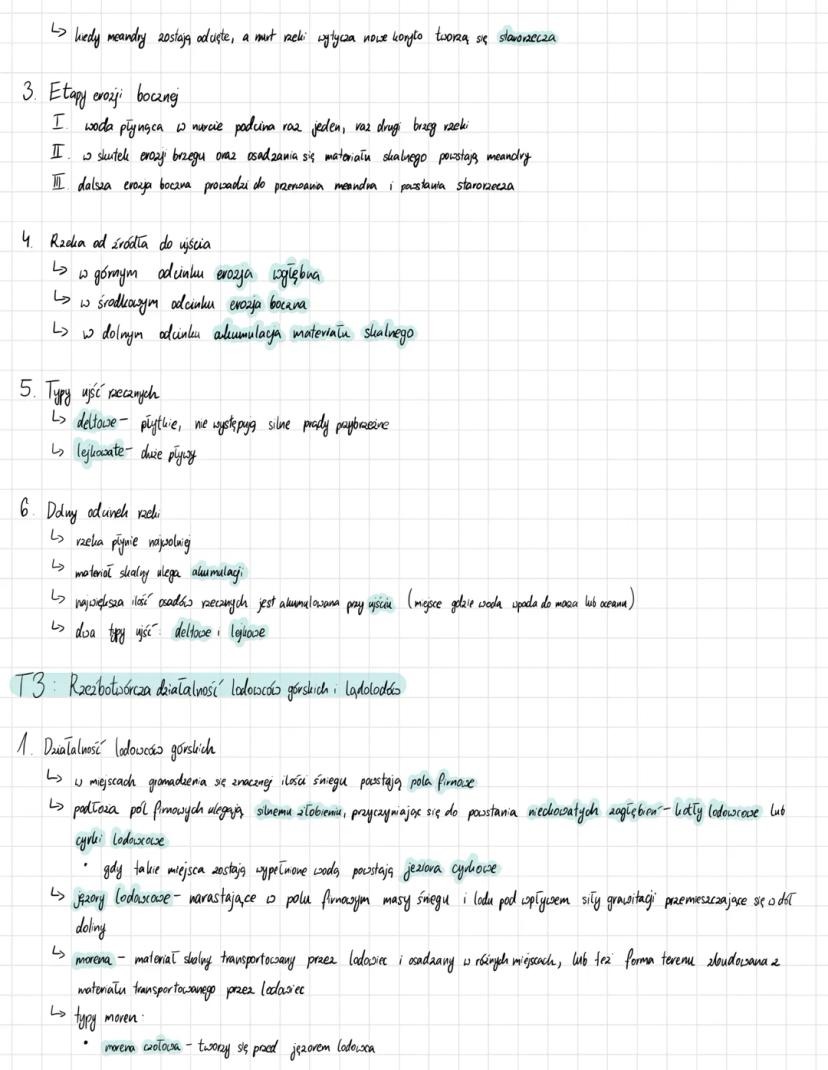 ↳ kiedy meandry zostają odcięte, a nurt rzeki wytycza nowe koryto tworzą się starorzecza
3. Etapy erozji bocznej
I. woda płynąca w nurcie podcina raz jeden, raz drugi brzeg rzeki
II. w skutek erozji brzegu oraz osadzania się materiału skalnego powstają meandry
III. dalsza erozja boczna prowadzi do przerwania meandra i powstania starorzecza
4. Rzeka od źródła do ujścia
↳ w górnym odcinku erozja wgłębna
↳ w środkowym odcinku erozja boczna
↳ w dolnym odcinku akumulacja materiału skalnego
5. Typy ujść rzecznych
↳ deltowe - płytkie, nie występują silne prądy przybrzeżne
↳ lejkowate - duże pływy
6. Dolny odcinek rzeki
↳ rzeka płynie najwolniej
↳ materiał skalny ulega akumulacji
↳ największa ilość osadów rzecznych jest akumulowana przy ujściu (miejsce gdzie woda wpada do morza lub oceanu)
↳ dwa typy ujść: deltowe i lejkowe
T3: Rzeźbotwórcza działalność lodowców górskich i lądolodów
1. Działalność lodowców górskich
↳ w miejscach gromadzenia się znacznej ilości śniegu powstają pola firnowe
↳ podłoża pól firnowych ulegają silnemu żłobieniu, przyczyniając się do powstania nieckowatych zagłębień - kotły lodowcowe lub
cyrki lodowcowe
• gdy takie miejsca zostają wypełnione wodą powstają jeziora cyrkowe
↳ jęzory lodowcowe - narastające w polu firnowym masy śniegu i lodu pod wpływem siły grawitacji przemieszczające się w dół
doliny
↳ morena - materiał skalny transportowany przez lodowiec i osadzany w różnych miejscach, lub też forma terenu zbudowana z
materiału transportowanego przez lodowiec
↳ typy moren:
• morena czołowa - tworzy się przed jęzorem lodowca